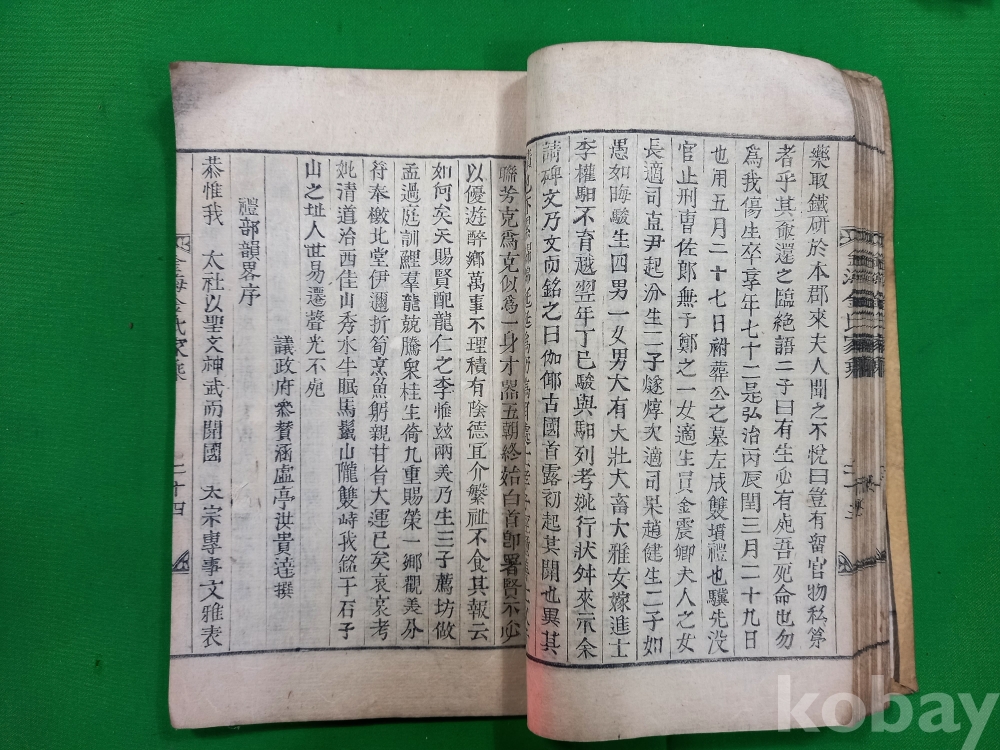 藥取鐵研於本郡來夫人聞之不悅曰豈有留官物私第
者乎其亟還之臨絶語二子曰有生必有死吾死命也勿
爲我傷生卒享年七十二是弘治丙辰閏三月二十九日
也用五月二十七日祔葬公之墓左成雙墳禮也驥先没
官止刑曺佐郎無子鄭之一女適生員金震卿夫人之女
長適司直尹起汾生二子燧焞次適司果趙健生二子如
愚如晦駿生四男一女男大有大壯大畜大雅女嫁進士
李權馹不育越翌年丁巳駿與馹列考妣行狀舛來示余
請碑文乃文而銘之曰伽倻古國首露初起其開也異其
聯芳克爲克似爲一身才器五朝終始白首郎署賢不必
以優遊醉鄉萬事不理積有陰德宜介繁祉不食其報云
如何矣天賜賢配龍仁之李惟玆兩美乃生三子薦坊做
孟過庭訓鯉羣龍競騰衆桂生倚九重賜榮一鄉觀美分
符奉檄北堂伊邇折筍烹魚躬親甘旨大運已矣哀哀考
妣清道治西佳山秀水牛眠馬鬣山隴雙峙我銘于石子
山之址人世易遷聲光不死
議政府叅贊涵虛亭洪貴達撰
禮部韻畧序
恭惟我 太祖以聖文神武而開國 太宗專事文雅表
金海金氏家乘
二十四
kobay